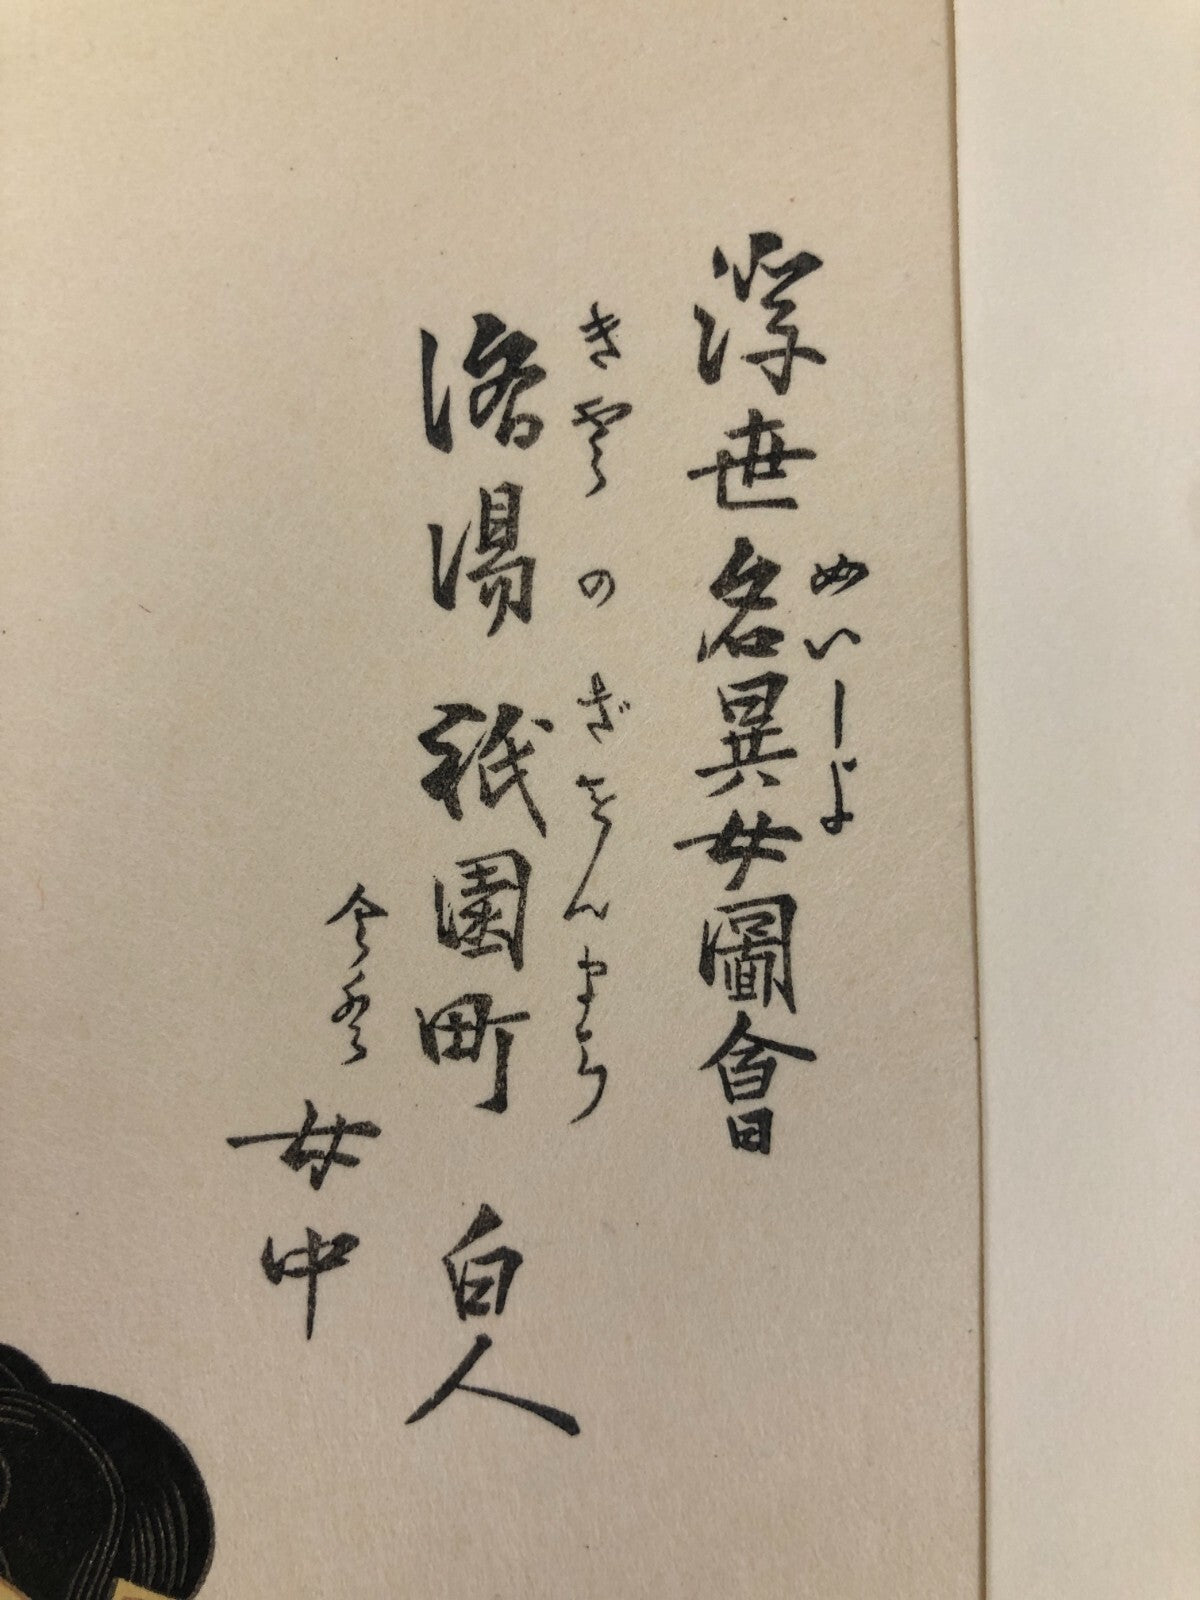 めいしよ
浮世名異女圖會
きやうのぎをんまち
洛湯祇園町 白人
女中